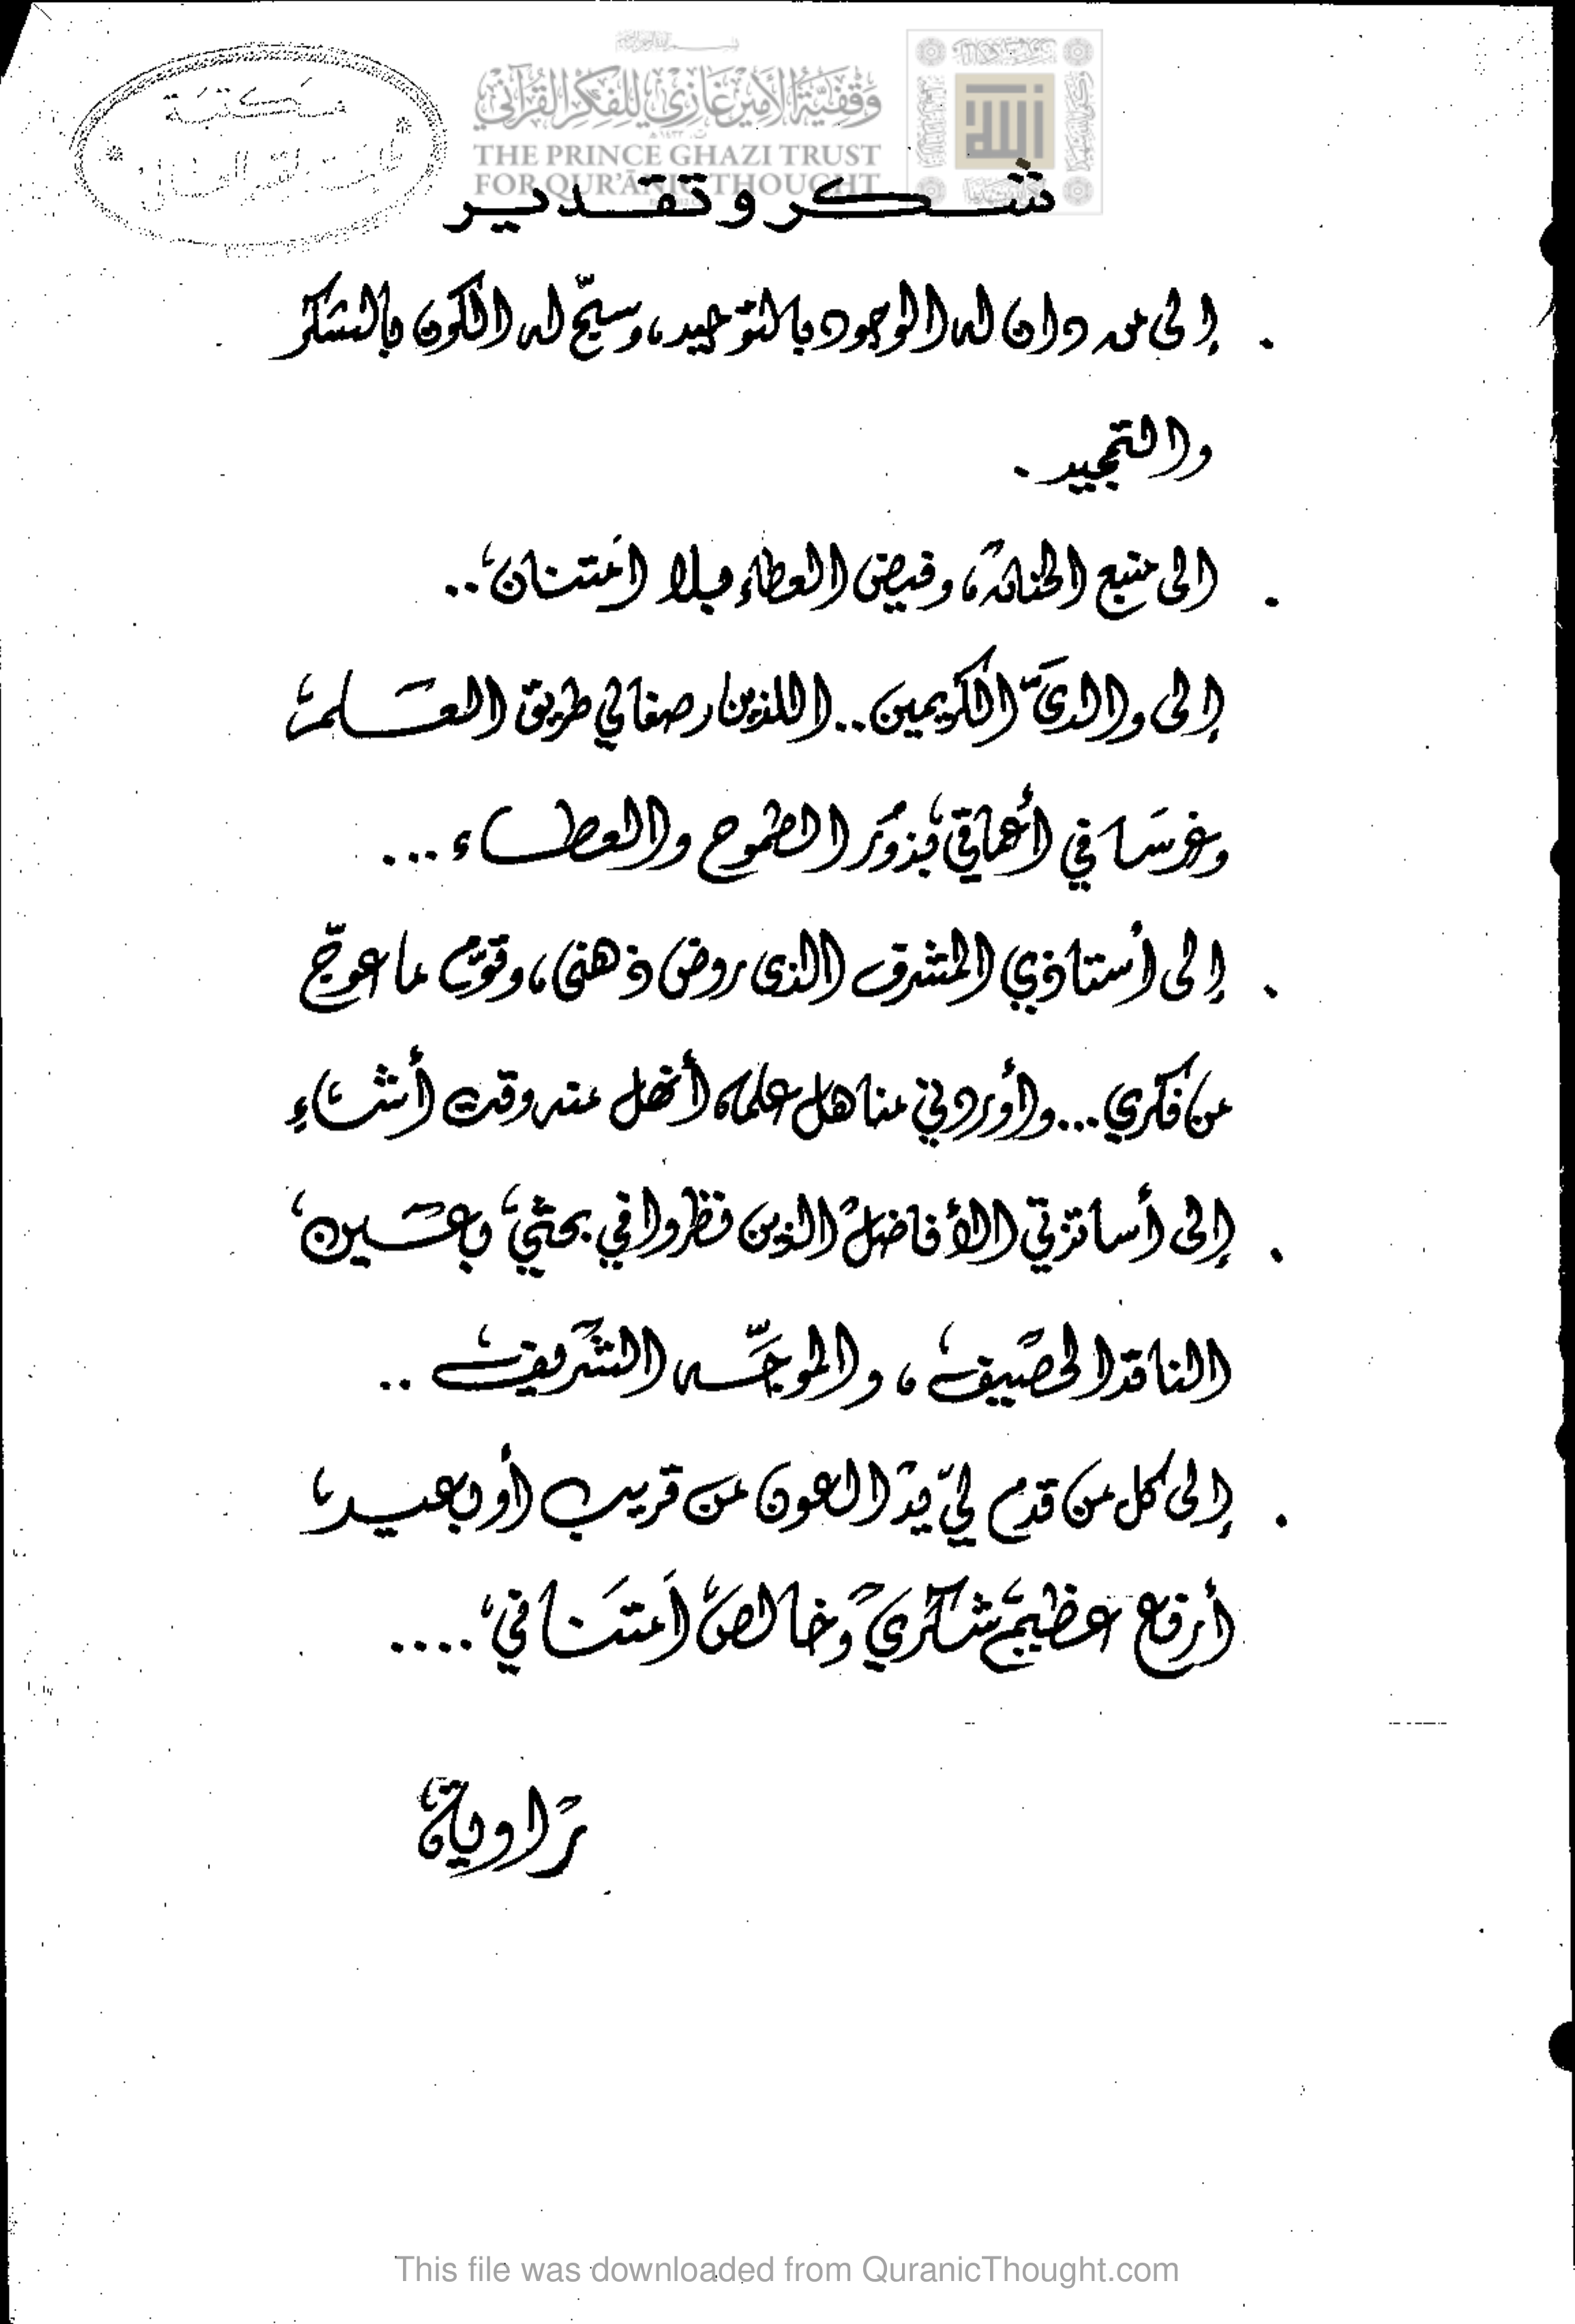 وقفية الأمير غازي للفكر القرآني
THE PRINCE GHAZI TRUST
FOR QUR'ĀNIC THOUGHT
مكتبة
شكر وتقدير
. إلى من دان له الوجود بالتوحيد، وسبّح له الكون بالشكر
والتمجيد .
. الى منبع الحنان، وفيض العطاء بلا امتنان ..
إلى والديّ الكريمين .. اللذين رصفا لي طريق العلم
وغرسا في أعماقي بذور الطموح والعطاء ...
. إلى أستاذي المشرف الذى روض ذهنى، وقوّم ما عوجّ
من فكري ... وأوردني مناهل علمه أنهل منه وقت أشاء
. إلى أساتذتي الأفاضل الذين نظروا في بحثي بعين
الناقد الحصيف، والموجّه الشريف ..
. إلى كل من قدم ليّ يد العون من قريب أو بعيد،
أرفع عظيم شكري وخالص امتناني ....
راوية
This file was downloaded from QuranicThought.com